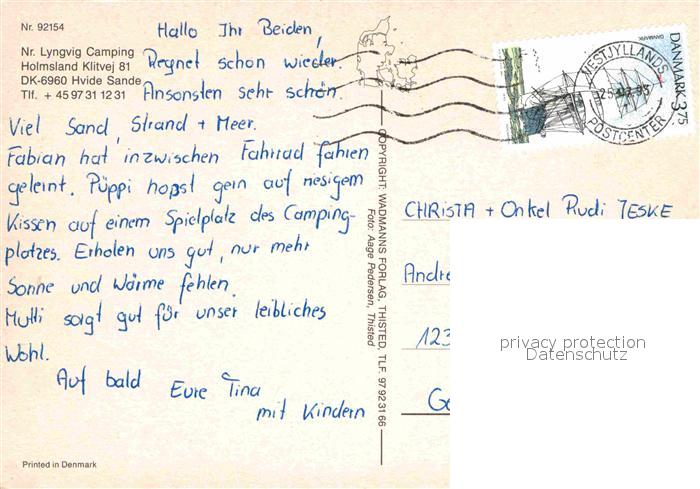 Nr. 92154
Nr. Lyngvig Camping
Holmsland Klitvej 81
DK-6960 Hvide Sande
Tlf. + 45 97 31 12 31
Hallo Ihr Beiden,
Regnet schon wieder.
Ansonsten sehr schön.
Viel Sand, Strand + Meer.
Fabian hat inzwischen Fahrrad fahren
gelernt. Püppi hopst gern auf riesigem
Kissen auf einem Spielplatz des Camping-
platzes. Erholen uns gut, nur mehr
Sonne und Wärme fehlen.
Mutti sorgt gut für unser leibliches
Wohl.
Auf bald Eure Tina
mit Kindern
Printed in Denmark
COPYRIGHT: WADMANNS FORLAG, THISTED. TLF. 97 92 31 66
Foto: Aage Pedersen, Thisted
DANMARK
DANMARK 3.75
VESTJYLLANDS
POSTCENTER
CHRISTA + Onkel Rudi JESKE
Andre
123
Ge
privacy protection
Datenschutz